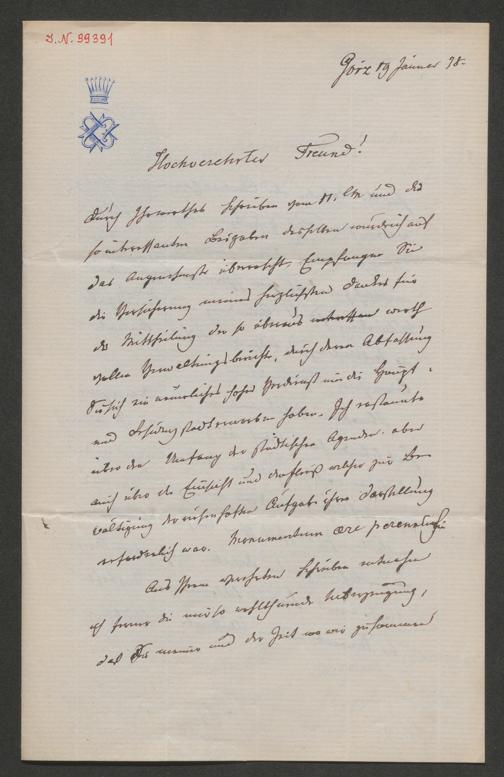 I. N. 99391
Görz 19 Jänner 78.
Hochverehrter Freund!
Durch Ihr werthes Schreiben vom 11. und die
so interessanten Beigaben desselben wurde ich auf
das Angenehmste überrascht. Empfangen Sie
die Versicherung meines herzlichsten Dankes für
die Mittheilung der so überaus werth
vollen Verwaltungsberichte, durch deren Abfassung
Sie sich ein neuerliches hohes Verdienst um die Haupt-
und Residenzstadt erworben haben. Ich erstaunte
über den Umfang der städtischen Agenden aber
auch über die Einsicht und den Fleiß welcher zur Be-
wältigung der riesenhaften Aufgabe ihrer Darstellung
erforderlich war. Monumentum aere perennius
Aus Ihrem verehrten Schreiben entnehme
ich ferner die mir so wohlthuende Ueberzeugung,
daß Sie meiner und der Zeit wo wir zusammen